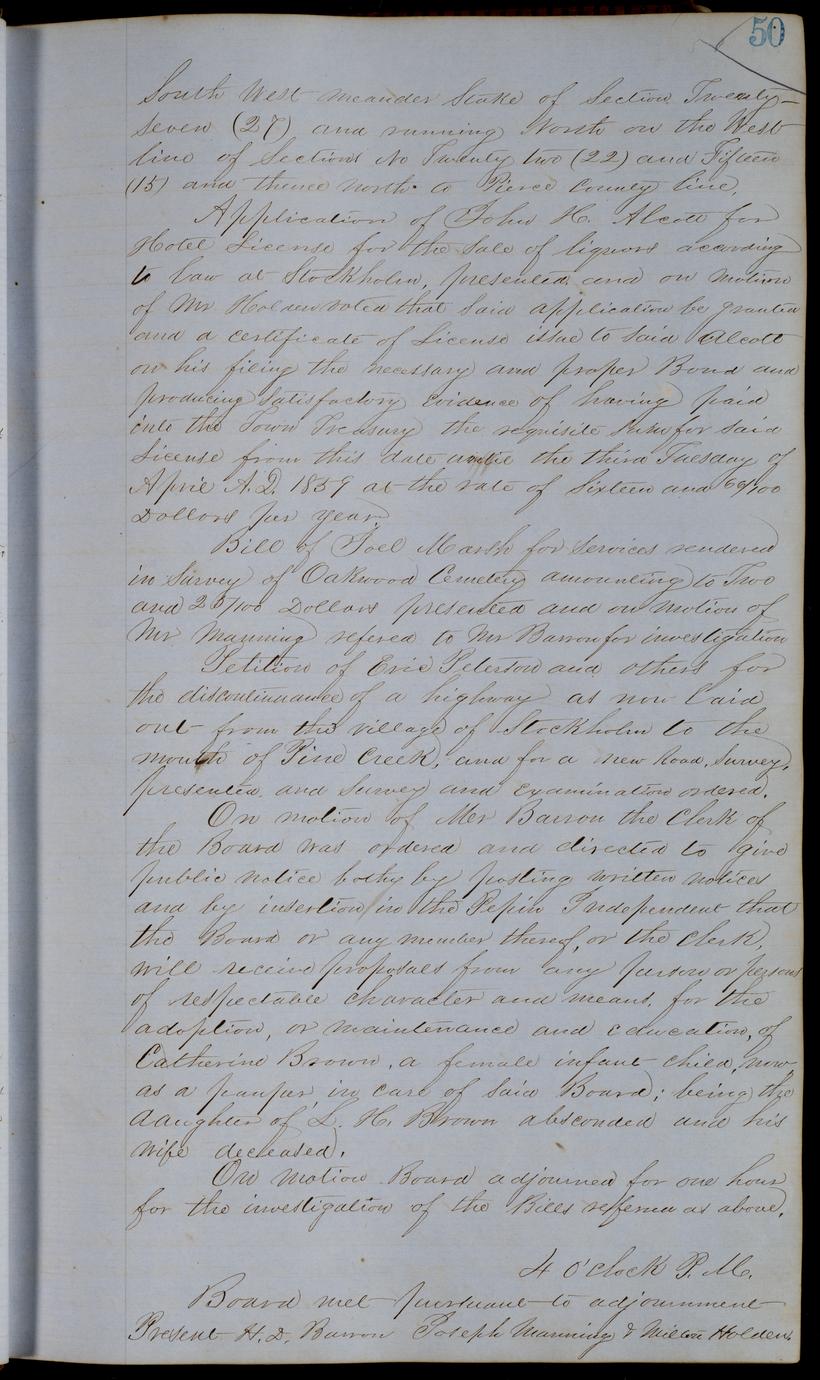 50
South West meander Stake of Section Twenty-
seven (27) and running North on the West
line of Sections No Twenty two (22) and Fifteen
(15) and thence north to Pierce County line.
Application of John H. Alcott for
Hotel License for the Sale of liquors according
to law at Stockholm, presented and on motion
of Mr Holden voted that said application be granted
and a certificate of License issue to said Alcott
on his fileing the necessary and proper Bond and
producing Satisfactory evidence of having paid
into the Town Treasury the requisite Sum for said
License from this date untill the third Tuesday of
April A.D. 1859 at the rate of Sixteen and 66/100
Dollars per year.
Bill of Joel Marsh for Services rendered
in Survey of Oakwood Cemetery amounting to Two
and 25/100 Dollars presented and on motion of
Mr Manning refered to Mr Barron for investigation
Petition of Eric Peterson and others for
the discontinuance of a highway as now laid
out from the village of Stockholm to the
mouth of Pine Creek, and for a new Road, Survey,
presented and Survey and examination ordered.
On motion of Mr Barron the Clerk of
the Board was ordered and directed to give
public notice bothy by posting written notices
and by insertion in the Pepin Independent that
the Board or any member thereof, or the Clerk,
will receive proposals from any person or persons
of respectable character and means, for the
adoption, or maintenance and education, of
Catherine Brown, a female infant child, now
as a pauper in care of said Board; being the
daughter of L. H. Brown absconded and his
wife deceased.
On motion Board adjourned for one hour
for the investigation of the Bills referred as above.
4 O'clock P.M.
Board met pursuant to adjournment
Present H.D. Barron Joseph Manning & Milton Holden